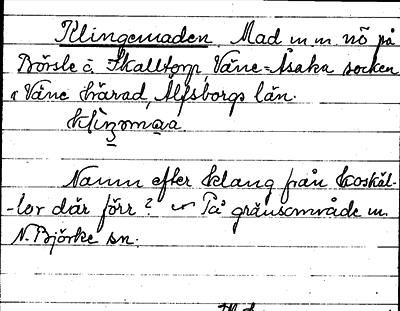 Klingemaden. Mad m m nö på
Börsle ö. Skalltorp, Väne-Åsaka socken
i Väne härad, Älfsborgs län.
klinzomaa
Namn efter klang från koskäl-
-lor där förr? På gränsområde m.
N. Björke sn.